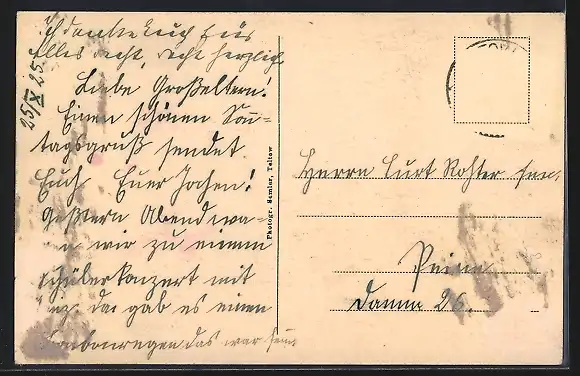 Ich danke Euch für
alles recht, recht herzlich
25/X 25.
Liebe Großeltern!
Einen schönen Sonn-
tagsgruß sendet
Euch Euer Jochen!
Gestern Abend wa-
wir zu einem
Schülerkonzert mit
da gab es einen
Bonbonregen das war fein
Photogr. Semler, Teltow
Herrn Curt Rohter sen.
Peine
Damm 26.